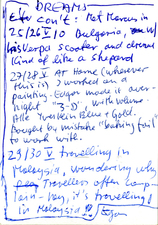 DREAMS
con't: Met Marcus in
25/26 V 10 Bulgaria, w/
his Vespa scooter and dressed
kind of like a shepherd
27/28 V At Home (wherever
this is) I worked on a
painting. Edgar made it over-
night "3-D", with volume.
Alle Turkisin Blue + Gold.
Bought by mistake "baking foil"
to work with.
29/30 V Travelling in
Malaysia, wondering why
Travellers often comp-
lain - hey, it's travelling
in Malaysia